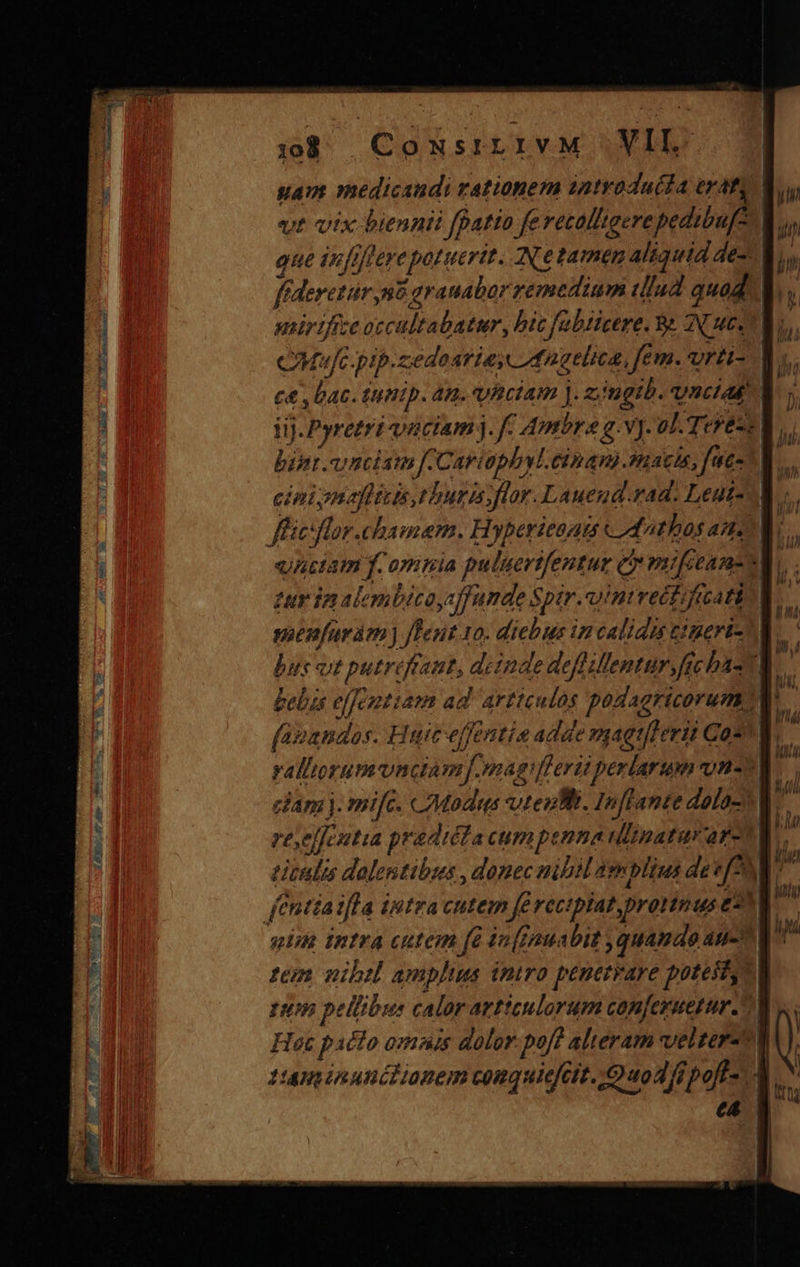 108 CONSILIVM VII.
nam medicandi rationem introducta erat,
vt vix biennii ſpatio ſe recolligere pedibuſ-
que inſiſtere potuerit. Ne tamen aliquid de-
ſideretur, nō grauabor remedium illud quod
mirifice occultabatur, hic ſubiicere. ℞. Nuc.
Muſc. pip. zedoariæ, Angelicæ, ſem. vrti-
cæ, bac. iunip. an. vnciam j. zingib. vncias
iij. Pyretri vnciam j. ſ. Ambræ g. vj. ol. Tere-
bint. vnciam ſ. Cariophyl. cinam. macis, ſuc-
cini, maſtichis, thuris, flor. Lauend. rad. Leui-
ſtic. flor. chamæm. Hyperico nis Anthos an.
vnciam ſ. omnia pulueriſentur & miſcean-
tur in alembico, affunde Spir. vini rectificati
menſuram j ſtent 10. diebus in calidis cineri-
bus vt putreſiant, deinde deſtillentur, ſic ha-
bebis eſſentiam ad articulos podagricorum
ſanandos. Huic eſſentiæ adde magiſterii Co-
ralliorum vnciam ſ. magiſterii perlarum vn-
ciam j. miſc. Modus vtendi. Inſtante dolo-
re, eſſentia prædicta cum penna illinatur ar-
ticulis dolentibus, donec nihil amplius de eſ-
ſentia iſta intra cutem ſe recipiat, protinus e-
nim intra cutem ſe inſinuabit, quando au-
tem nihil amplius intro penetrare poteſt,
tum pellibus calor articulorum conſeruetur.
Hoc pacto omnis dolor poſt alteram vel ter-
tiam inunctionem conquieſcit. Quod ſi poſt-
ea